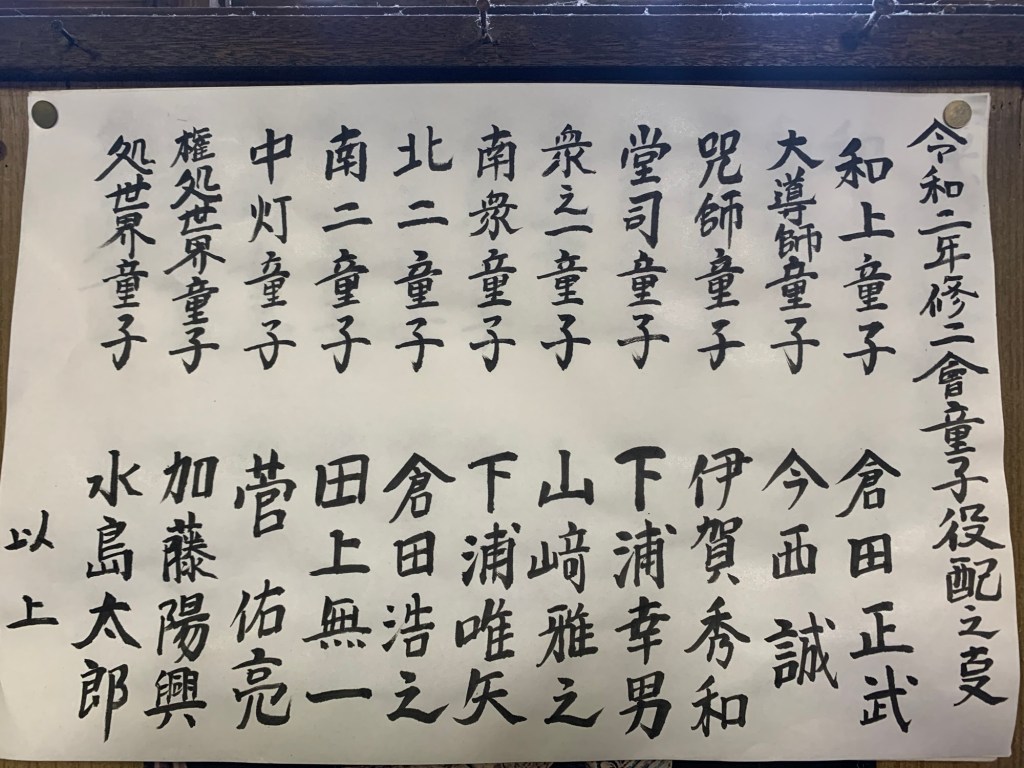 令和二年修二會童子役配之叓
和上童子 倉田正武
大導師童子 今西誠
咒師童子 伊賀秀和
堂司童子 下浦幸男
衆之一童子 山﨑雅之
南衆童子 下浦唯矢
北二童子 倉田浩之
南二童子 田上無一
中灯童子 菅佑亮
権処世界童子 加藤陽興
処世界童子 水島太郎
以上